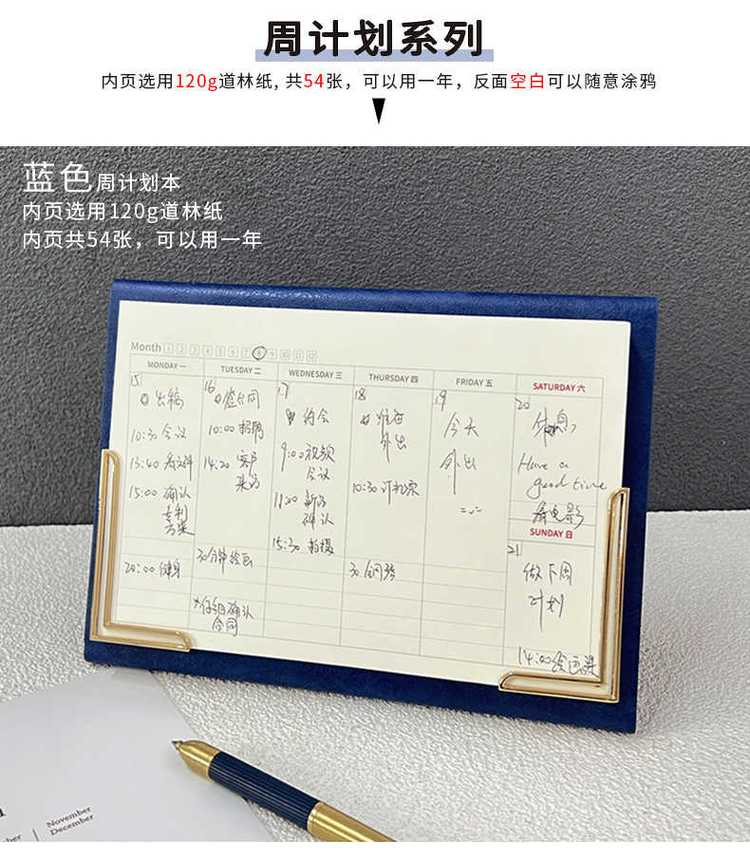 周计划系列
内页选用120g道林纸, 共54张，可以用一年，反面空白可以随意涂鸦
蓝色周计划本
内页选用120g道林纸
内页共54张，可以用一年
Month 1 2 3 4 5 6 7 8 9 10 11 12
MONDAY 一 TUESDAY 二 WEDNESDAY 三 THURSDAY 四 FRIDAY 五 SATURDAY 六
15
出稿
10:30 会议
13:40
15:00 确认
专利
方案
20:00 健身
16
合同
10:00 招聘
14:20 客户
来访
30分钟绘画
确认
合同
17
约会
9:00 视频
会议
11:20 新闻
确认
15:30 拍摄
18
外出
10:30 订机票
30 钢琴
19
今天
外出
20
休息
Have a
good time
看电影
SUNDAY 日
21
做下周
计划
14:00 绘画课
November
December